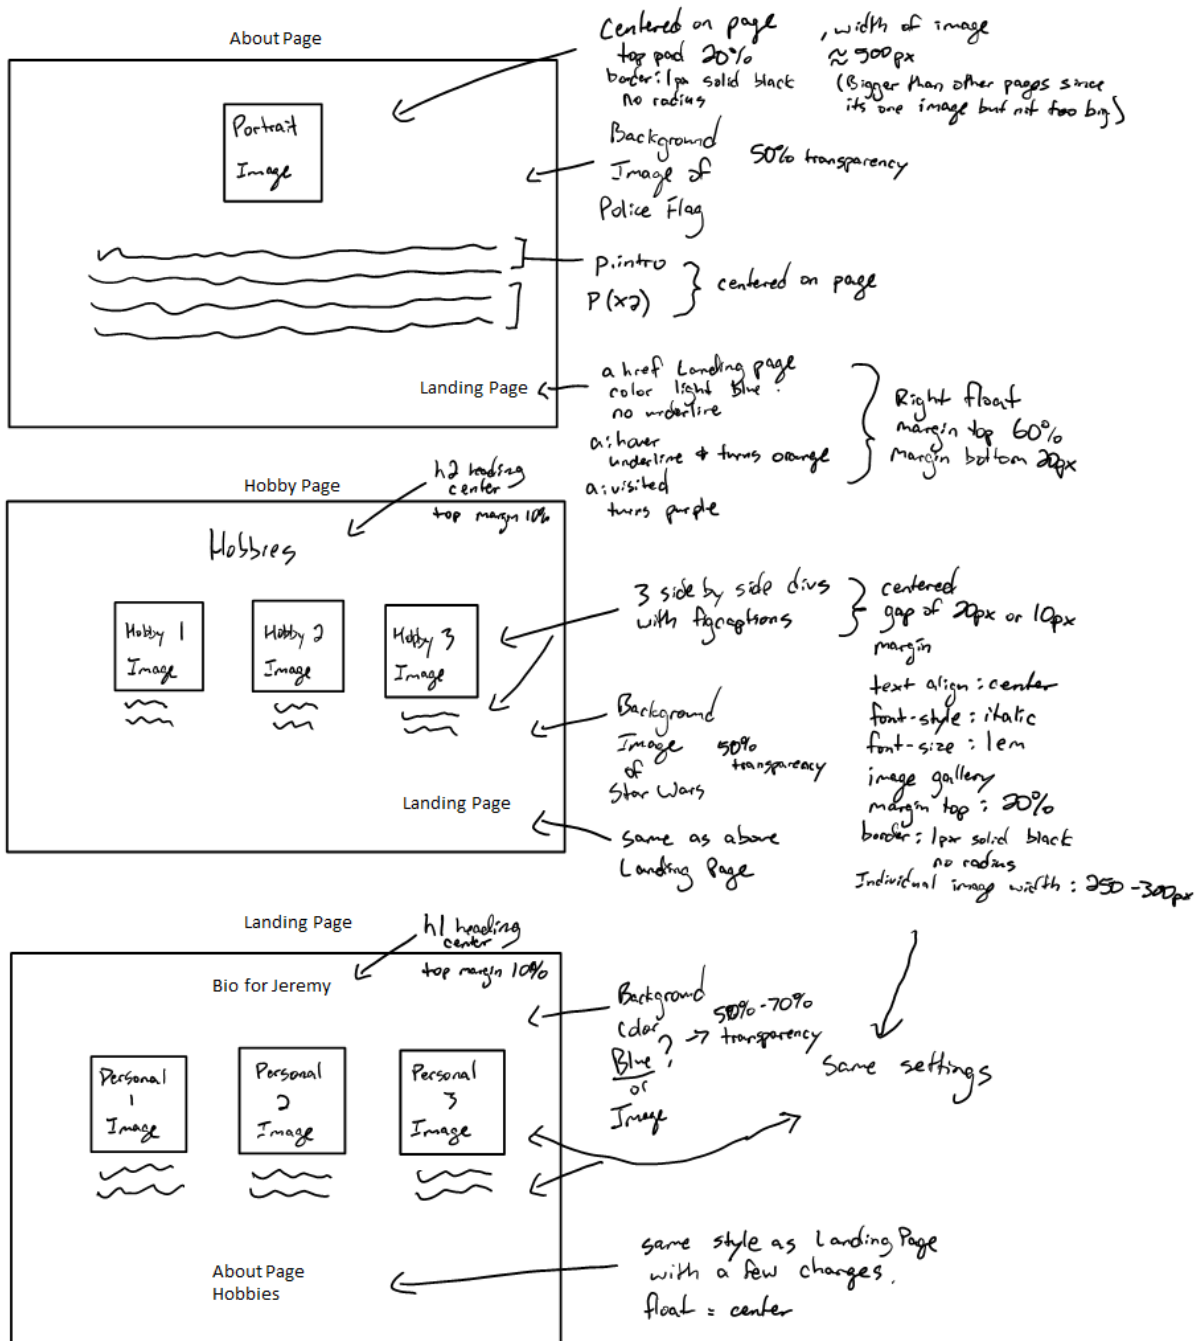 About Page
Portrait
Image
Landing Page
Centered on page
top pad 20%
border: 1px solid black
no radius
, width of image
≈ 500px
(Bigger than other pages since
its one image but not too big)
Background
Image of
Police Flag
50% transparency
p.intro
P (x2)
centered on page
a href Landing page
color light blue
no underline
a:hover
underline & turns orange
a:visited
turns purple
Right float
margin top 60%
margin bottom 20px
Hobby Page
h2 heading
center
top margin 10%
Hobbies
Hobby 1
Image
Hobby 2
Image
Hobby 3
Image
Landing Page
3 side by side divs
with figcaptions
centered
gap of 20px or 10px
margin
text align: center
font-style: italic
font-size: 1em
image gallery
margin top: 20%
border: 1px solid black
no radius
Individual image width: 250-300px
Background
Image
of
Star Wars
50%
transparency
same as above
Landing Page
Landing Page
h1 heading
center
top margin 10%
Bio for Jeremy
Personal
1
Image
Personal
2
Image
Personal
3
Image
About Page
Hobbies
Background
Color
Blue?
or
Image
50%-70%
transparency
Same settings
same style as Landing Page
with a few changes.
float = center